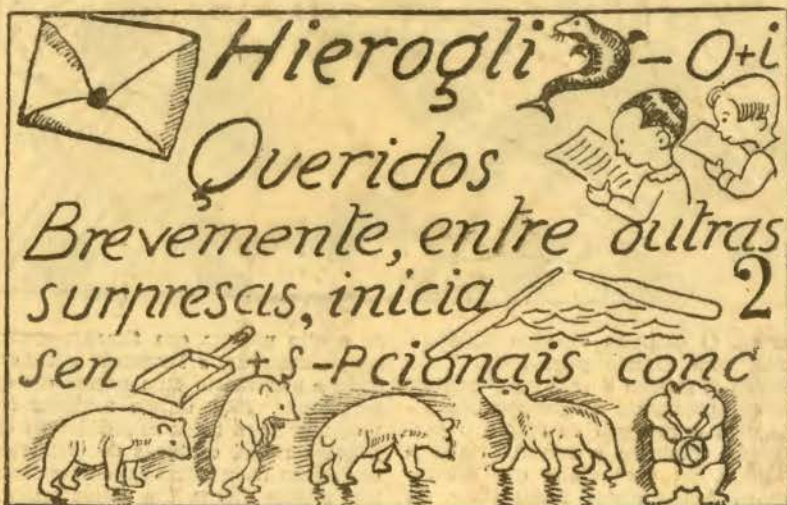 Hierogli - O + i
Queridos
Brevemente, entre outras
surpresas, inicia 2
sen + s - P cionais conc